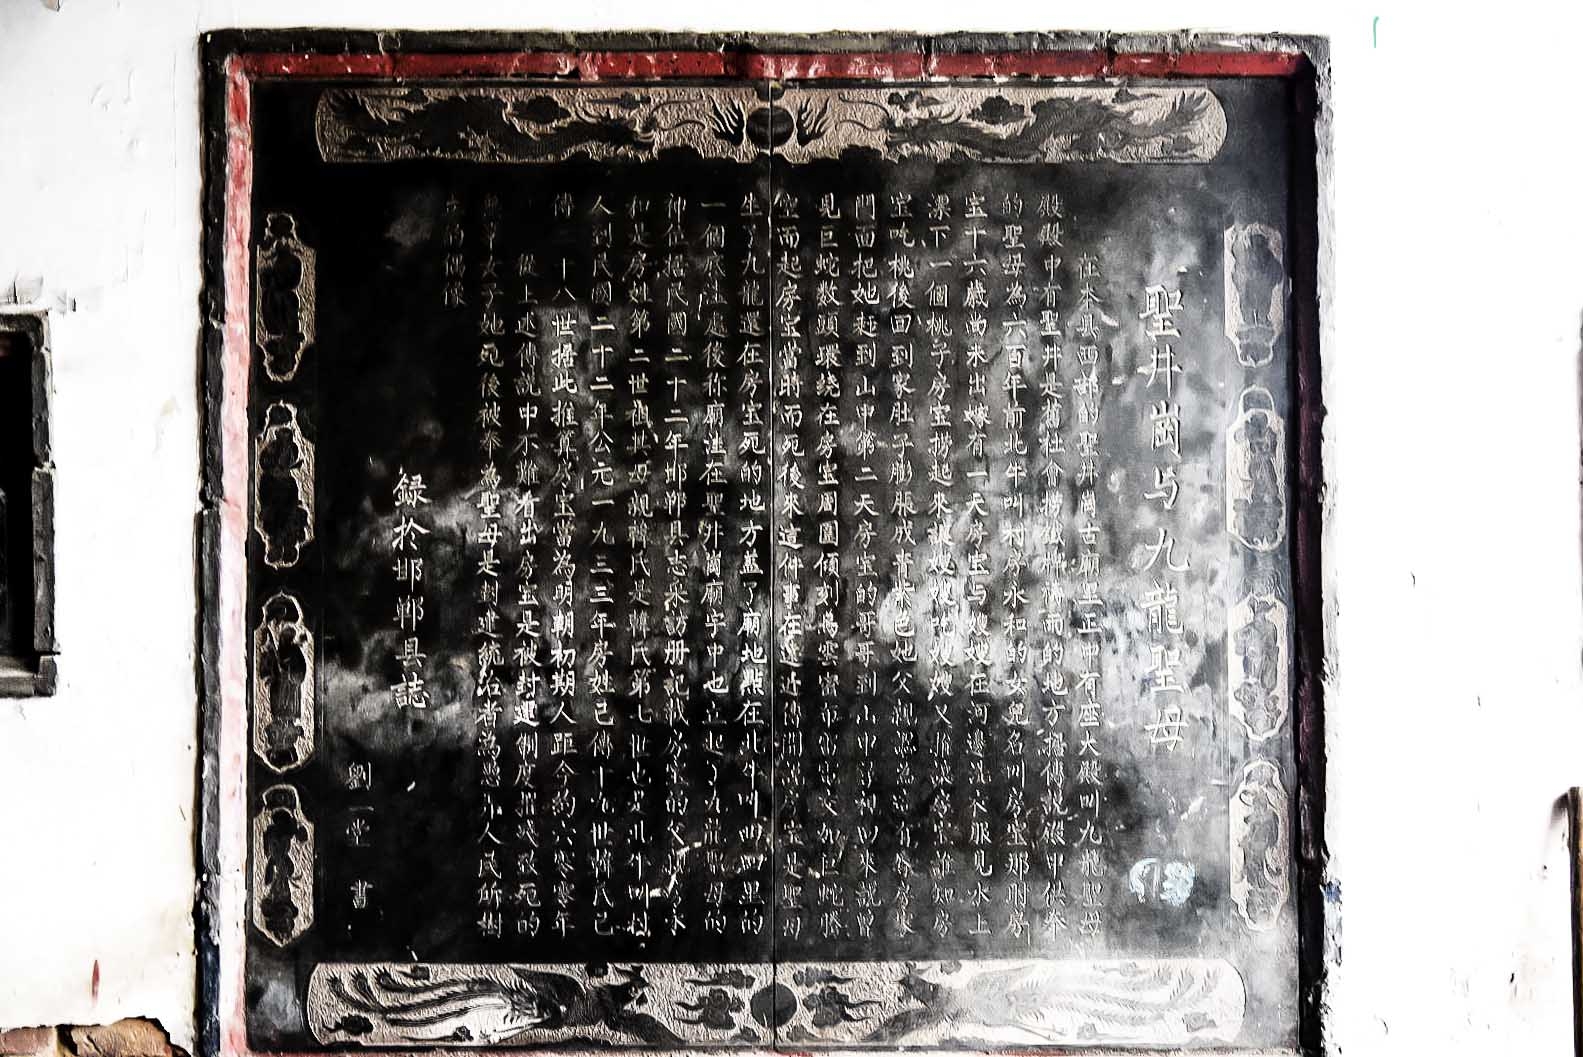 聖井崗与九龍聖母
在本县西部的聖井崗古廟里正中有座大殿叫九龍聖母
殿殿中有聖井是舊社會撈鐵牌禱雨的地方據傳說殿中供奉
的聖母為六百年前北牛叫村房永和的女兒名叫房宝那时房
宝十六歲尚未出嫁有一天房宝与嫂嫂在河邊洗衣服見水上
漂下一個桃子房宝撈起來讓嫂嫂吃嫂嫂又推讓房宝誰知房
宝吃桃後回到家肚子膨脹成青紫色她父親
門面把她赶到山中第二天房宝的哥哥到山中
見巨蛇数頭環繞在房宝周圍傾刻為雲密布雷電交加巨蛇騰
空而起房宝當時而死後來這件事在遠近傳開說房宝是聖母
生了九龍還在房宝死的地方蓋了廟地點在北牛叫西四里的
一個底洼處後称廟洼在聖井崗廟宇中也立起了九龍聖母的
神位据民國二十二年邯鄲县志采訪册記載房宝的父親房永
和是房姓第二世祖其母親韓氏是韓氏第七世也是北牛叫村
人到民國二十二年公元一九三三年房姓已傳十九世韓氏已
傳二十八世据此推算房宝當為明朝初期人距今約六零零年
從上述傳說中不難看出房宝是被封建制度摧殘致死的
無辜女子她死後被奉為聖母是封建統治者為愚弄人民所樹
立的偶像
録於邯鄲县誌
劉一堂 書